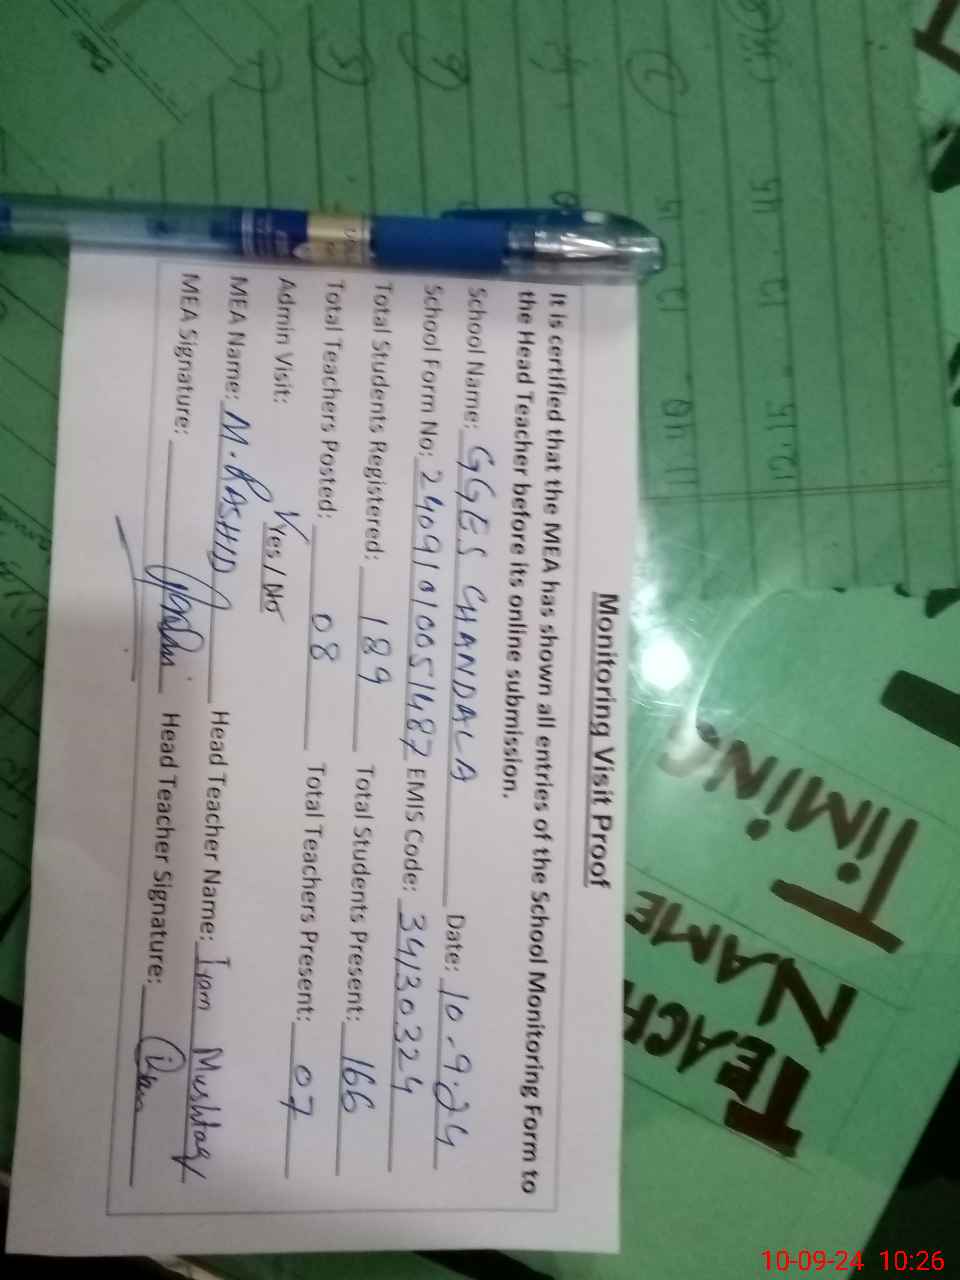 Monitoring Visit Proof
It is certified that the MEA has shown all entries of the School Monitoring Form to
the Head Teacher before its online submission.
School Name: GGES CHANDALA Date: 10.9.24
School Form No: 24091010051487 EMIS Code: 34130324
Total Students Registered: 189 Total Students Present: 166
Total Teachers Posted: 08 Total Teachers Present: 07
Admin Visit: Yes / No
MEA Name: M. RASHID Head Teacher Name: Iram Mushtaq
MEA Signature: Head Teacher Signature:
TIMING
NAME
TEACH
12.15
11.01
10-09-24 10:26